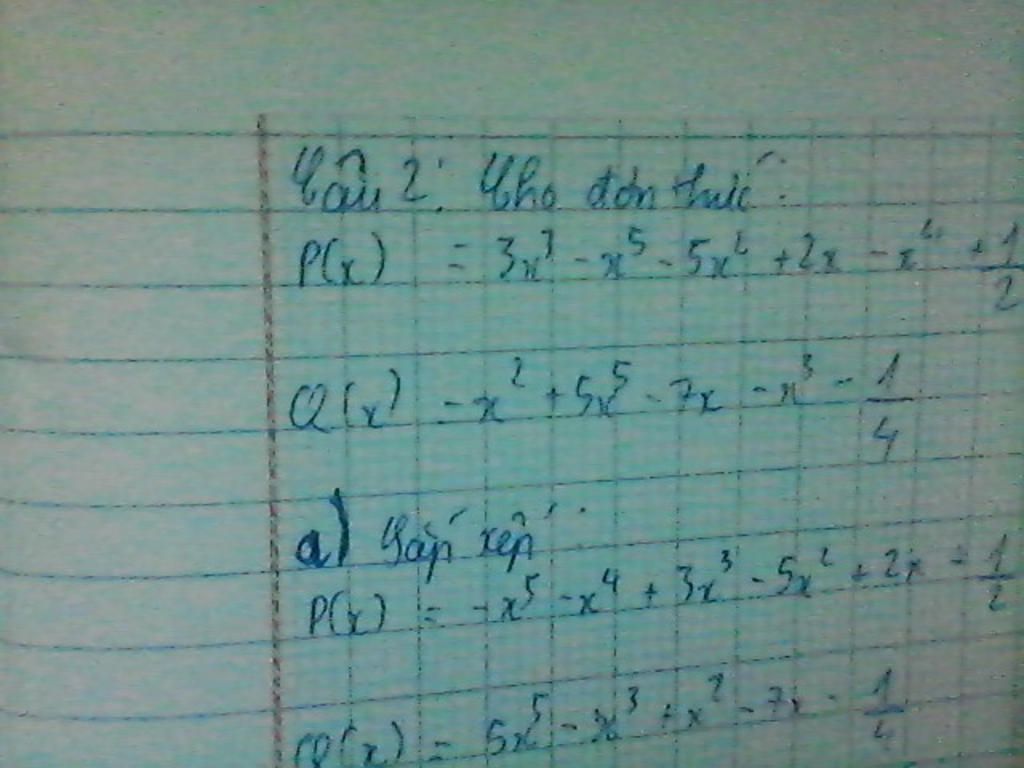 Câu 2: Cho đơn thức:
P(x) = 3x³ - x⁵ - 5x² + 2x - x⁴ + 1/2
Q(x) = x² + 5x⁵ - 7x - x³ - 1/4
a) Sắp xếp:
P(x) = -x⁵ - x⁴ + 3x³ - 5x² + 2x + 1/2
Q(x) = 5x⁵ - x³ + x² - 7x - 1/4